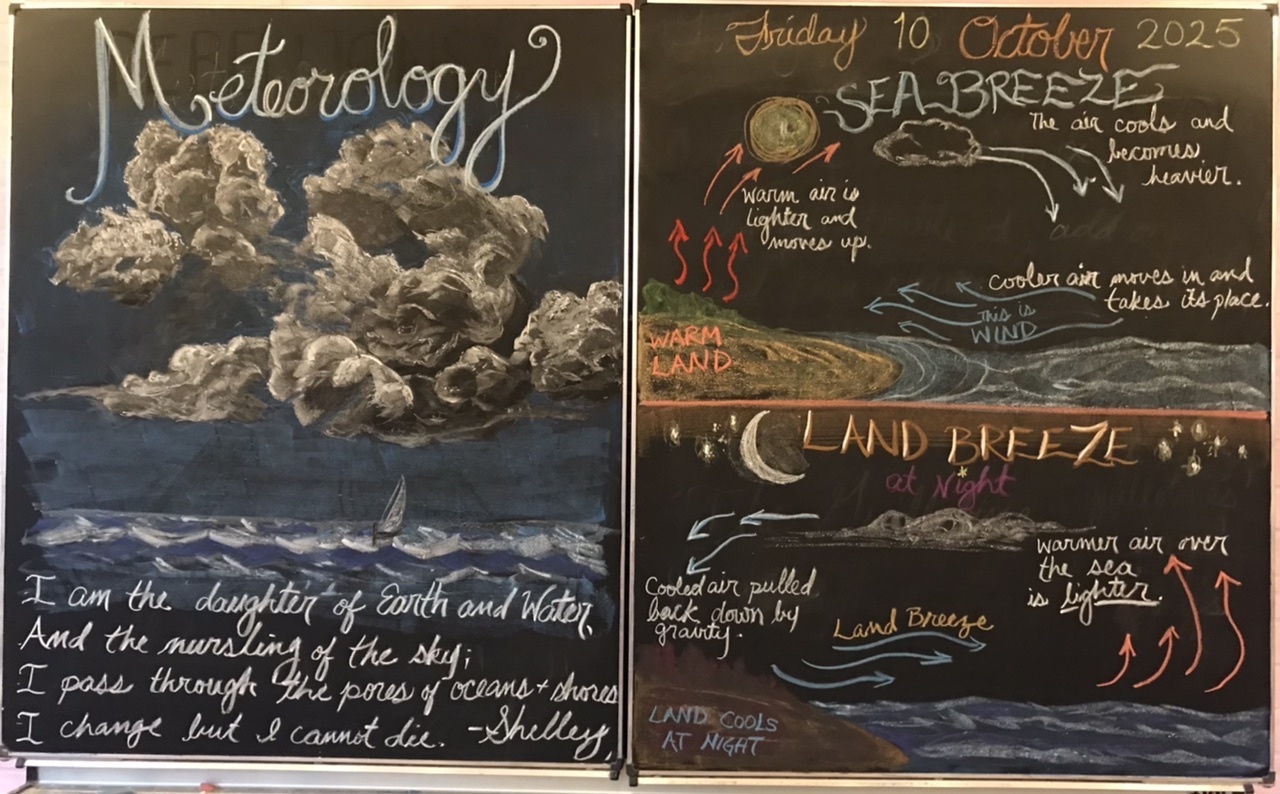 Meteorology
I am the daughter of Earth and Water,
And the nursling of the sky;
I pass through the pores of oceans + shores
I change but I cannot die. -Shelley,
Friday 10 October 2025
SEA BREEZE
The air cools and
becomes
heavier.
warm air is
lighter and
moves up.
cooler air moves in and
takes its place.
This is
WIND
WARM
LAND
LAND BREEZE
at Night
warmer air over
the sea
is lighter.
Cooled air pulled
back down by
gravity.
Land Breeze
LAND COOLS
AT NIGHT